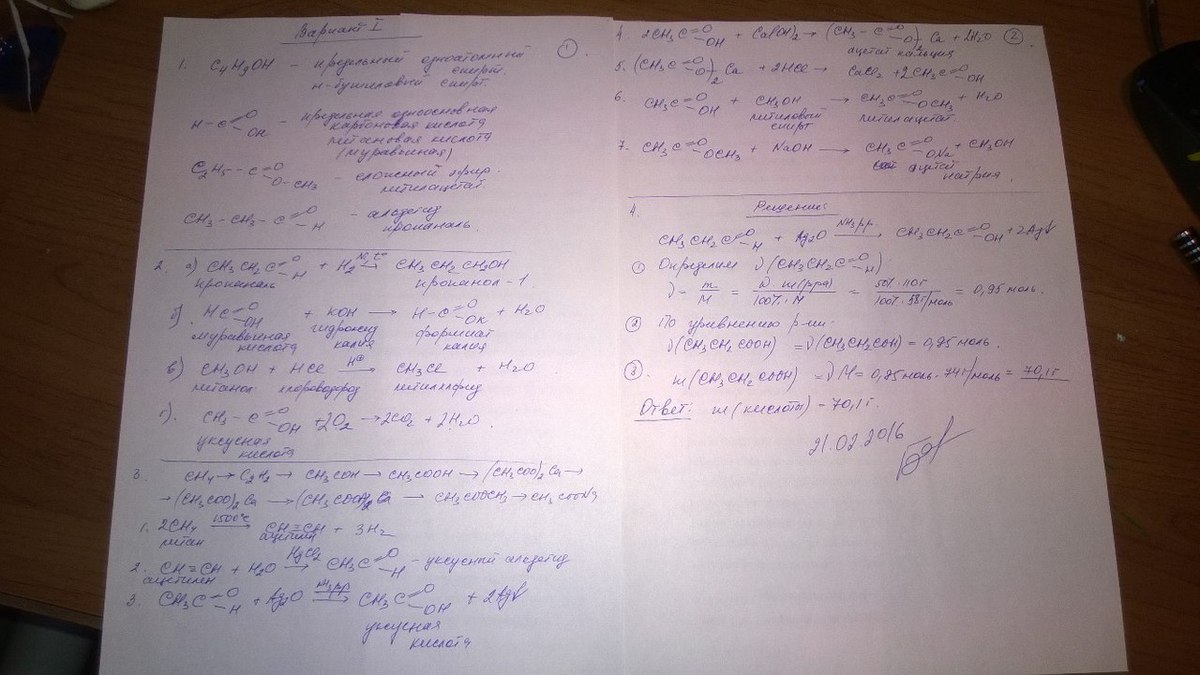 Вариант I
①.
1. C₄H₉OH – предельный одноатомный
спирт.
н-бутиловый спирт.
H – C =O
OH – предельная одноосновная
карбоновая кислота
метановая кислота
(муравьиная)
C₂H₅ – C =O
O – CH₃ – сложный эфир.
метилацетат.
CH₃ – CH₂ – C =O
H – альдегид
пропаналь.
2. а) CH₃CH₂C =O
H + H₂ Ni, t° → CH₃CH₂CH₂OH
пропаналь пропанол-1
б) HC =O
OH + KOH → H – C =O
OK + H₂O
муравьиная гидроксид формиат
кислота калия калия
в) CH₃OH + HCl H⊕ → CH₃Cl + H₂O
метанол хлороводород метилхлорид
г) CH₃ – C =O
OH + 2O₂ → 2CO₂ + 2H₂O.
уксусная
кислота
3. CH₄ → C₂H₂ → CH₃COH → CH₃COOH → (CH₃COO)₂Ca →
→ (CH₃COO)₂Ca → → CH₃COOCH₃ → CH₃COONa
1. 2CH₄ 1500°C → CH≡CH + 3H₂
метан ацетилен
2. CH≡CH + H₂O → CH₃C =O
H – уксусный альдегид
ацетилен
3. CH₃C =O
H + Ag₂O NH₃ рр → CH₃C =O
OH + 2Ag↓
уксусная
кислота
4. 2CH₃C =O
OH + Ca(OH)₂ → (CH₃ – C =O
O –)₂ Ca + 2H₂O ②
ацетат кальция
5. (CH₃C =O
O –)₂ Ca + 2HCl → CaCl₂ + 2CH₃C =O
OH
6. CH₃C =O
OH + CH₃OH → CH₃C =O
OCH₃ + H₂O
метиловый метилацетат.
спирт
7. CH₃C =O
OCH₃ + NaOH → CH₃C =O
ONa + CH₃OH
ацетат
натрия.
4. Решение
CH₃CH₂C =O
H + Ag₂O NH₃ рр → CH₃CH₂C =O
OH + 2Ag↓
① Определяем ν(CH₃CH₂C =O
H)
ν = m/M = W·m(рра)/100%·M = 50%·110г/100%·58г/моль = 0,95 моль.
② По уравнению р-ии:
ν(CH₃CH₂COOH) = ν(CH₃CH₂COH) = 0,95 моль.
③. m(CH₃CH₂COOH) = νM = 0,95 моль·74г/моль = 70,1г
Ответ: m(кислоты) = 70,1г.
21.02.2016